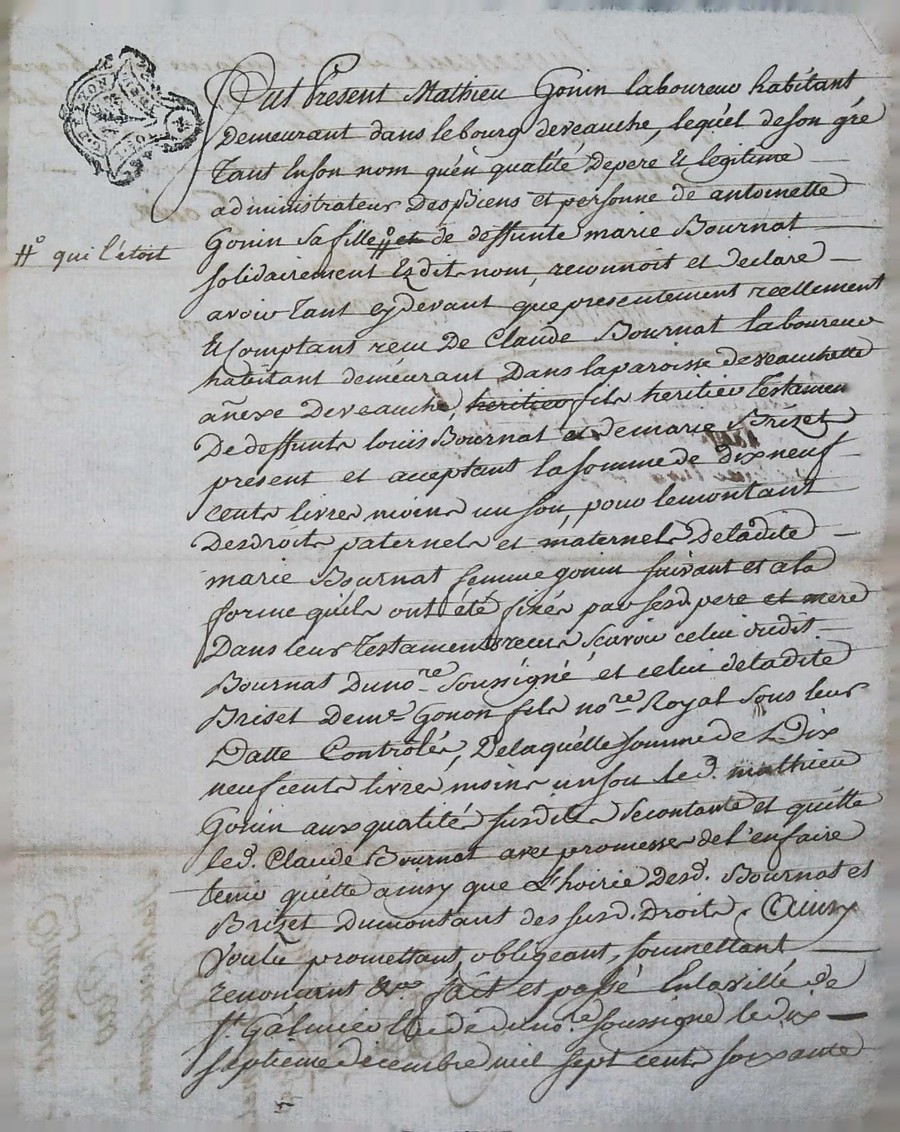 G. DE LYON
Fut Présent Mathieu Gonin laboureur habitant
Demeurant dans le bourg de veauche, lequel de son gré
Tant en son nom qu'en qualité De pere et legitime
administrateur Des Biens et personne de antoinette
Gonin sa fille # et de deffunte marie Bournat
#° qui l'étoit
solidairement esdits noms reconnoit et declare
avoir tant cy devant que presentement reellement
et comptans recu De Claude Bournat laboureur
habitant demeurant Dans la paroisse de veauchette
anexe De veauche, heritier fils heritier testamen
De deffunts louis Bournat et de marie Brizet
present et aceptant la somme de dix neuf
cents livres moins un sou, pour le montant
Des droits paternels et maternels De ladite
marie Bournat femme gonin suivant et a la
forme qu'ils ont été fixés par sesd pere et mere
Dans leurs Testaments recus scavoir celui dudit
Bournat Du no.re Soussigné et celui de ladite
Briset De me Gonon fils no.re Royal sous leurs
Datte Controlés, De laquelle somme de Dix
neuf cents livres moins un sou led. mathieu
Gonin aux qualités susdites se contante et quitte
led. Claude Bournat avec promesse de l'en faire
tenir quitte ainsy que L'hoirie Desd. Bournat et
Brizet Du montant des susd. Droits. Ainsy
Voulu promettant, obligeant, soumettant
renonçant &.a fait et passé En la ville de
St. Galmier Etude du no.re soussigné le dix
septieme decembre mil sept cents soixante